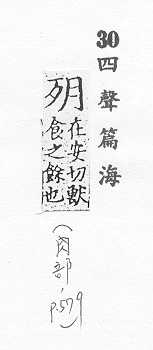 30 四聲篇海
在安切獸
食之餘也
(肉部, p.579)